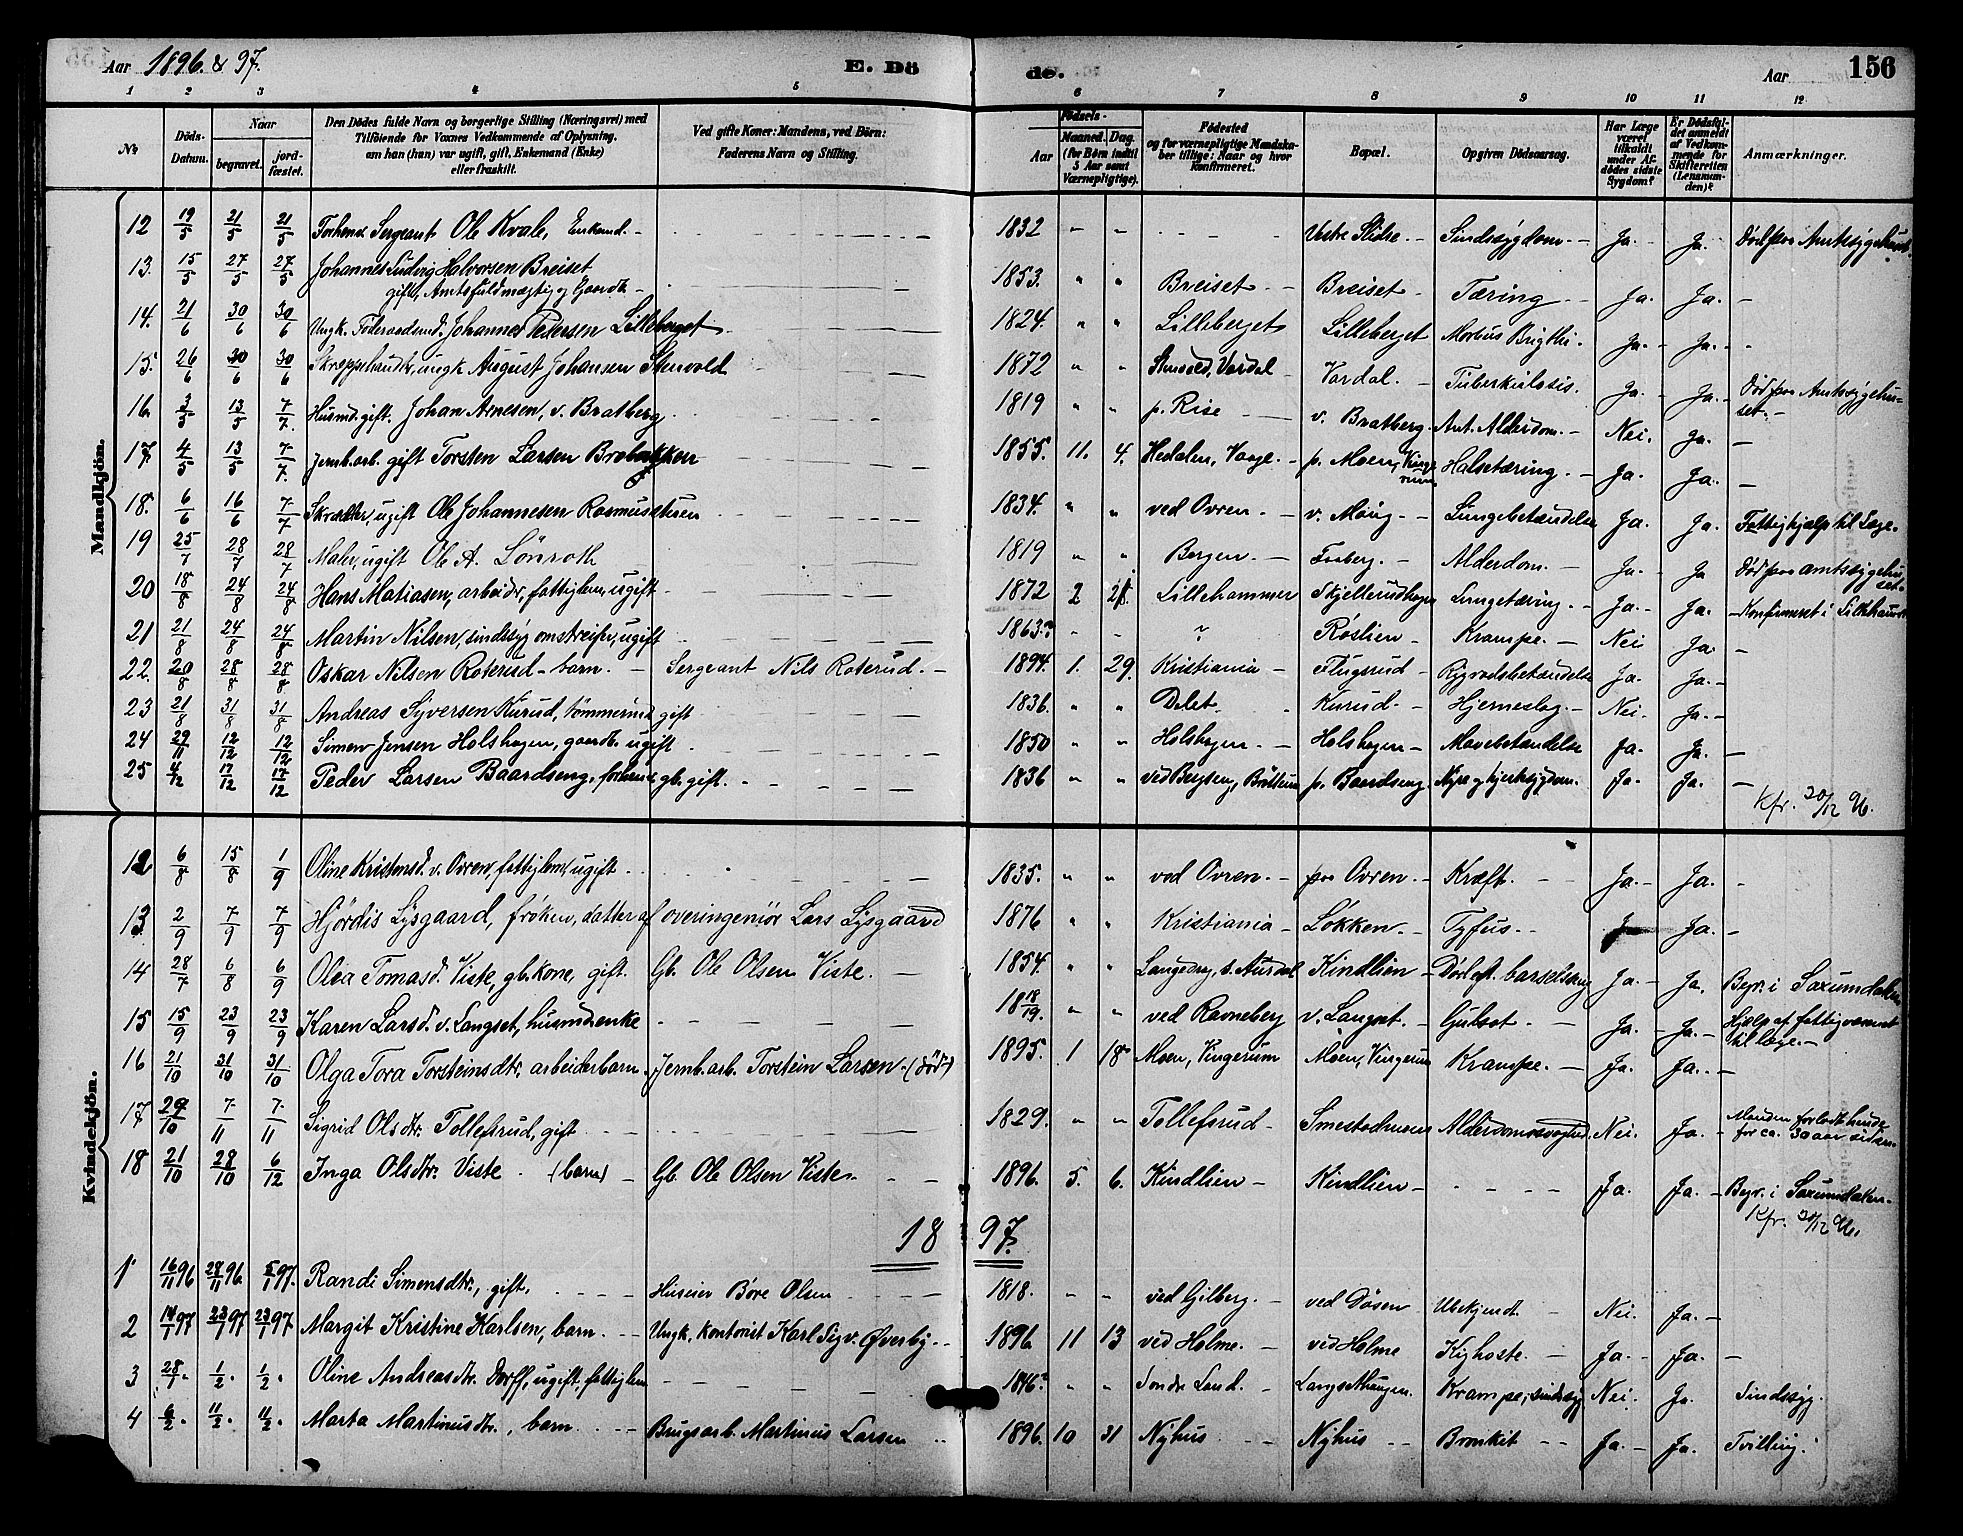 Aar 1896 & 97. E. Dö de. Aar 156
1 2 3 4 5 6 7 8 9 10 11 12
No. Döds-Datum. Naar begravet. jord-fæstet. Den Dödes fulde Navn og borgerlige Stilling (Næringsvei) med Tilföiende for Voxnes Vedkommende af Oplysning, om han (hun) var ugift, gift, Enkemand (Enke) eller fraskilt. Ved gifte Koner: Mandens, ved Börn: Faderens Navn og Stilling. Födsels- Aar Maaned. Dag. (for Börn indtil 5 Aar samt Værnepligtige). Födested og for værnepligtige Mandskaber tillige: Naar og hvor konfirmeret. Bopæl. Opgiven Dödsaarsag. Har Læge været tilkaldt under Afdödes sidste Sygdom? Er Dödsfaldet anmeldt af Vedkommende for Skifteretten (Lensmanden)? Anmærkninger.
Mandkjön.
12 19/5 21/5 21/5 Forhenv. Sergeant Ole Kvale, Enkemd. 1832 " " Vestre Slidre Sindssygdom Ja. Ja. Död paa Amtssygehuset.
13. 15/5 27/5 27/5 Johannes Ludvig Halvorsen Breiset gift, Amtsfuldmægtig og Gaardb. 1853. " " Breiset Breiset Tæring Ja. Ja.
14. 21/6 30/6 30/6 Ungk. Föderaadsmd. Johannes Petersen Lilleberget 1824. " " Lilleberget Lilleberget Morbus Brigthi. Ja. Ja.
15. 26/6 30/6 30/6 Skreppehandler, ungk. August Johansen Stenvold 1872 " " Stensved, Vardal Vardal. Tuberkulosis. Ja. Ja. Död paa Amtssygehuset.
16. 3/5 13/5 7/7. Husmd. gift. Johan Arnesen, v. Bratberg 1819 " " p. Rise v. Bratberg. Ant. Alderdom. Nei. Ja.
17. 4/5 13/5 7/7. Jernb.arb. gift Torsten Larsen Brobakken 1855. 11. 4. Hedalen, Vaage. p. Moen, Vingerum Halsetæring. Ja. Ja.
18. 6/6 16/6 7/7 Skrædder, ugift Ole Johannesen Rasmusstuen 1834. " " ved Ovren v. Maug Lungebetændelse Ja. Ja. Fattighjælp til Læge.
19 25/7 28/7 28/7 Maler, ugift Ole A. Lönrok 1819 " " Bergen Faaberg. Alderdom. Ja. Ja Död paa amtssygehuset.
20 18/8 24/8 24/8 Hans Matiasen, arbeidr, fattiglem, ugift 1872 2 21. Lillehammer Skjellerudhagen Lungetæring. Ja. Ja. Konfirmeret i
21 21/8 24/8 24/8 Martin Nilsen, sindssyg omstreifer, ugift 1863? - - ? Röslien Krampe. Nei Ja.
22. 20/8 28/8 28/8 Oskar Nilsen Roterud barn. Sergeant Nils Roterud. 1894. 1. 29. Kristiania Flugsrud Rygradsbetændelse Ja. Ja.
23 21/8 31/8 31/8 Andreas Syversen Kurud, tömmermd gift 1836. " " Delet. Kurud Hjerneslag Nei. Ja.
24 29/11 12/12 12/12 Simen Jensen Holshagen, gaardb. ugift 1850 " " Holshagen. Holshagen Mavebetændelse Ja. Ja.
25 4/12 17/12 17/12 Peder Larsen Baardseng, forhenv. gb. gift. 1836 " " ved Bergseng, Bröttum p. Baardseng. Nyre og hjertesygdom. Ja. Ja.
Kfr. 20/12 96.
Kvindekjön.
12 6/8 15/8 1/9 Oline Kristensd. v. Ovren, fattiglem, ugift 1835. " " ved Ovren. paa Ovren. Kræft. Ja. Ja.
13 2/9 7/9 7/9 Hjördis Lysgaard, fröken, datter af overingeniör Lars Lysgaard 1876 " " Kristiania Lökken. Tyfus. J Ja.
14 28/7 6/8 6/9 Olea Tomasd. Viste, gb.kone, gift. Gb. Ole Olsen Viste. 1854. " " S. Aurdal Kindlien Död eft. barselseng Ja Ja. Begr. i Saxumdalen
15 15/9 23/9 23/9 Karen Larsd. v. Langset, husmd.enke 18 18/19. " " ved Ravneberg v. Langset. Gulsot. Ja. Ja. Hjælp af fattigvæsenet til læge.
16 21/10 31/10 31/10 Olga Tora Torsteinsdtr. arbeiderbarn. Jernb.arb. Torstein Larsen (död) 1895. 1 18 Moen, Vingerum Moen, Vingerum Krampe. Ja. Ja.
17 29/10 7/11 7/11 Sigrid Olsdtr. Tollefsrud, gift 1829. " " Tollefsrud Smestadhusen Alderdomssvaghed. Nei. Ja. Manden forlodt hende for ca. 30 aar siden.
18 21/10 28/10 6/12 Inga Olsdtr. Viste (barn) Gb. Ole Olsen Viste. 1896. 5. 6. Kindlien Kindlien Ja. Ja. Begr. i Saxumdalen.
Kfr. 20/12 96.
18 97.
1 16/11 96 28/11 96. 5/1 97 Randi Simensdtr., gift. Huseier Böre Olsen 1818. " " ved Gilberg. ved Dösen Ubekjendt. Nei. Ja.
2 14/1 97 23/1 97 23/1 97 Margit Kristine Karlsen, barn. Ungk. kontorist Karl Sigv. Øverby. 1896 11 13 ved Holme. ved Holme Kighoste. Ja. Ja.
3 28/1. 1/2. 1/2. Oline Andreasdtr. Dorff, ugift, fattiglem 1846? " " Söndr. Land. Langsethaugen. Krampe, sindssyg Nei. Ja. Sindssyg.
4 6/2. 11/2. 11/2. Marta Martinusdtr., barn. Brugsarb. Martinus Larsen 1896. 10 31 Nyhus Nyhus Bronkit Ja. Ja. Tvilling.